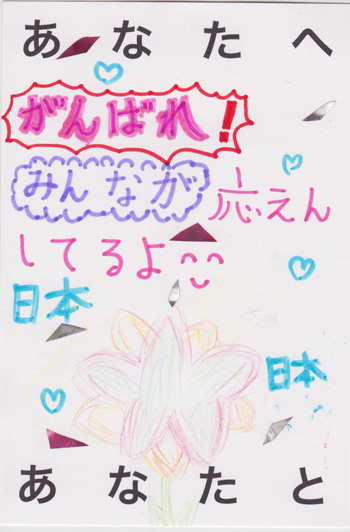 あなたへ
がんばれ!
みんなが応えん
してるよ
日本
日本
あなたと